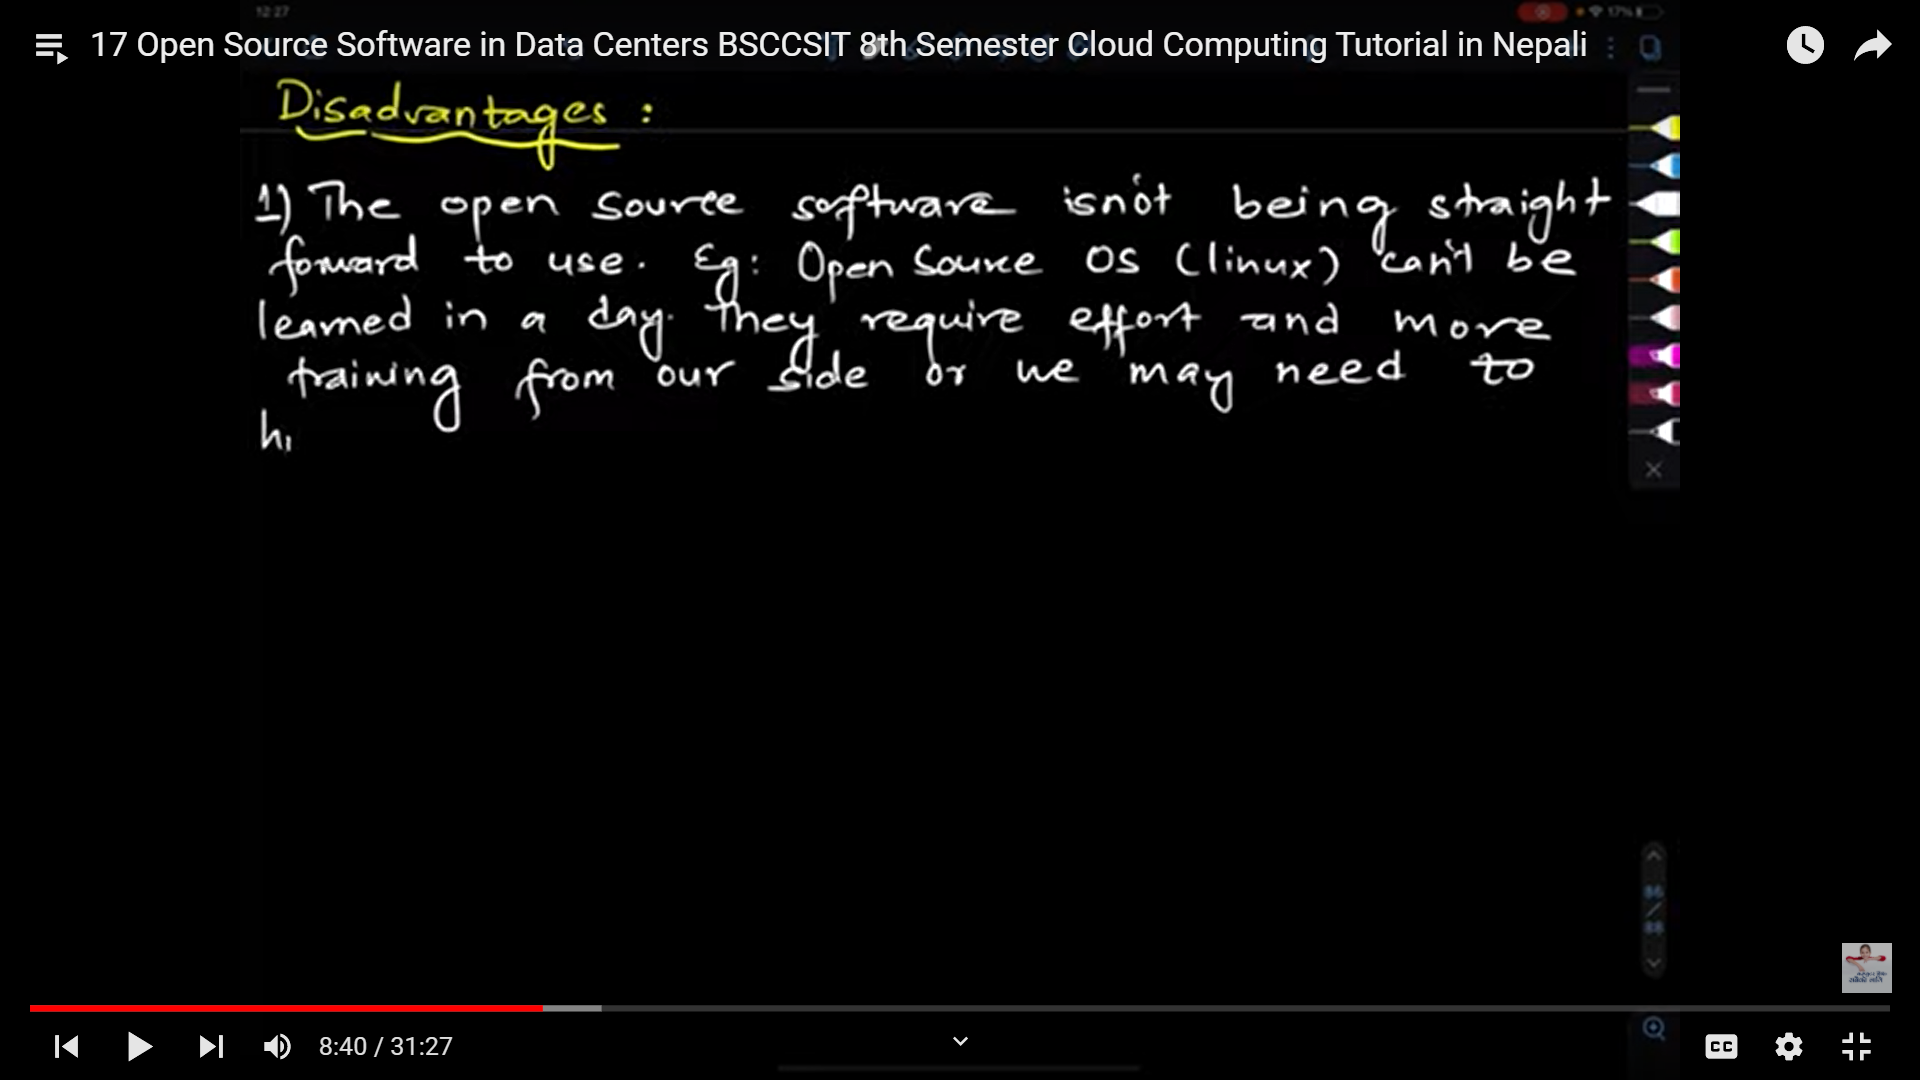 12:27
17%
17 Open Source Software in Data Centers BSCCSIT 8th Semester Cloud Computing Tutorial in Nepali
Disadvantages :
1) The open source software isn't being straight
forward to use. Eg: Open Source OS (linux) can't be
learned in a day. They require effort and more
training from our side or we may need to
hi
86
/
88
8:40 / 31:27
CC